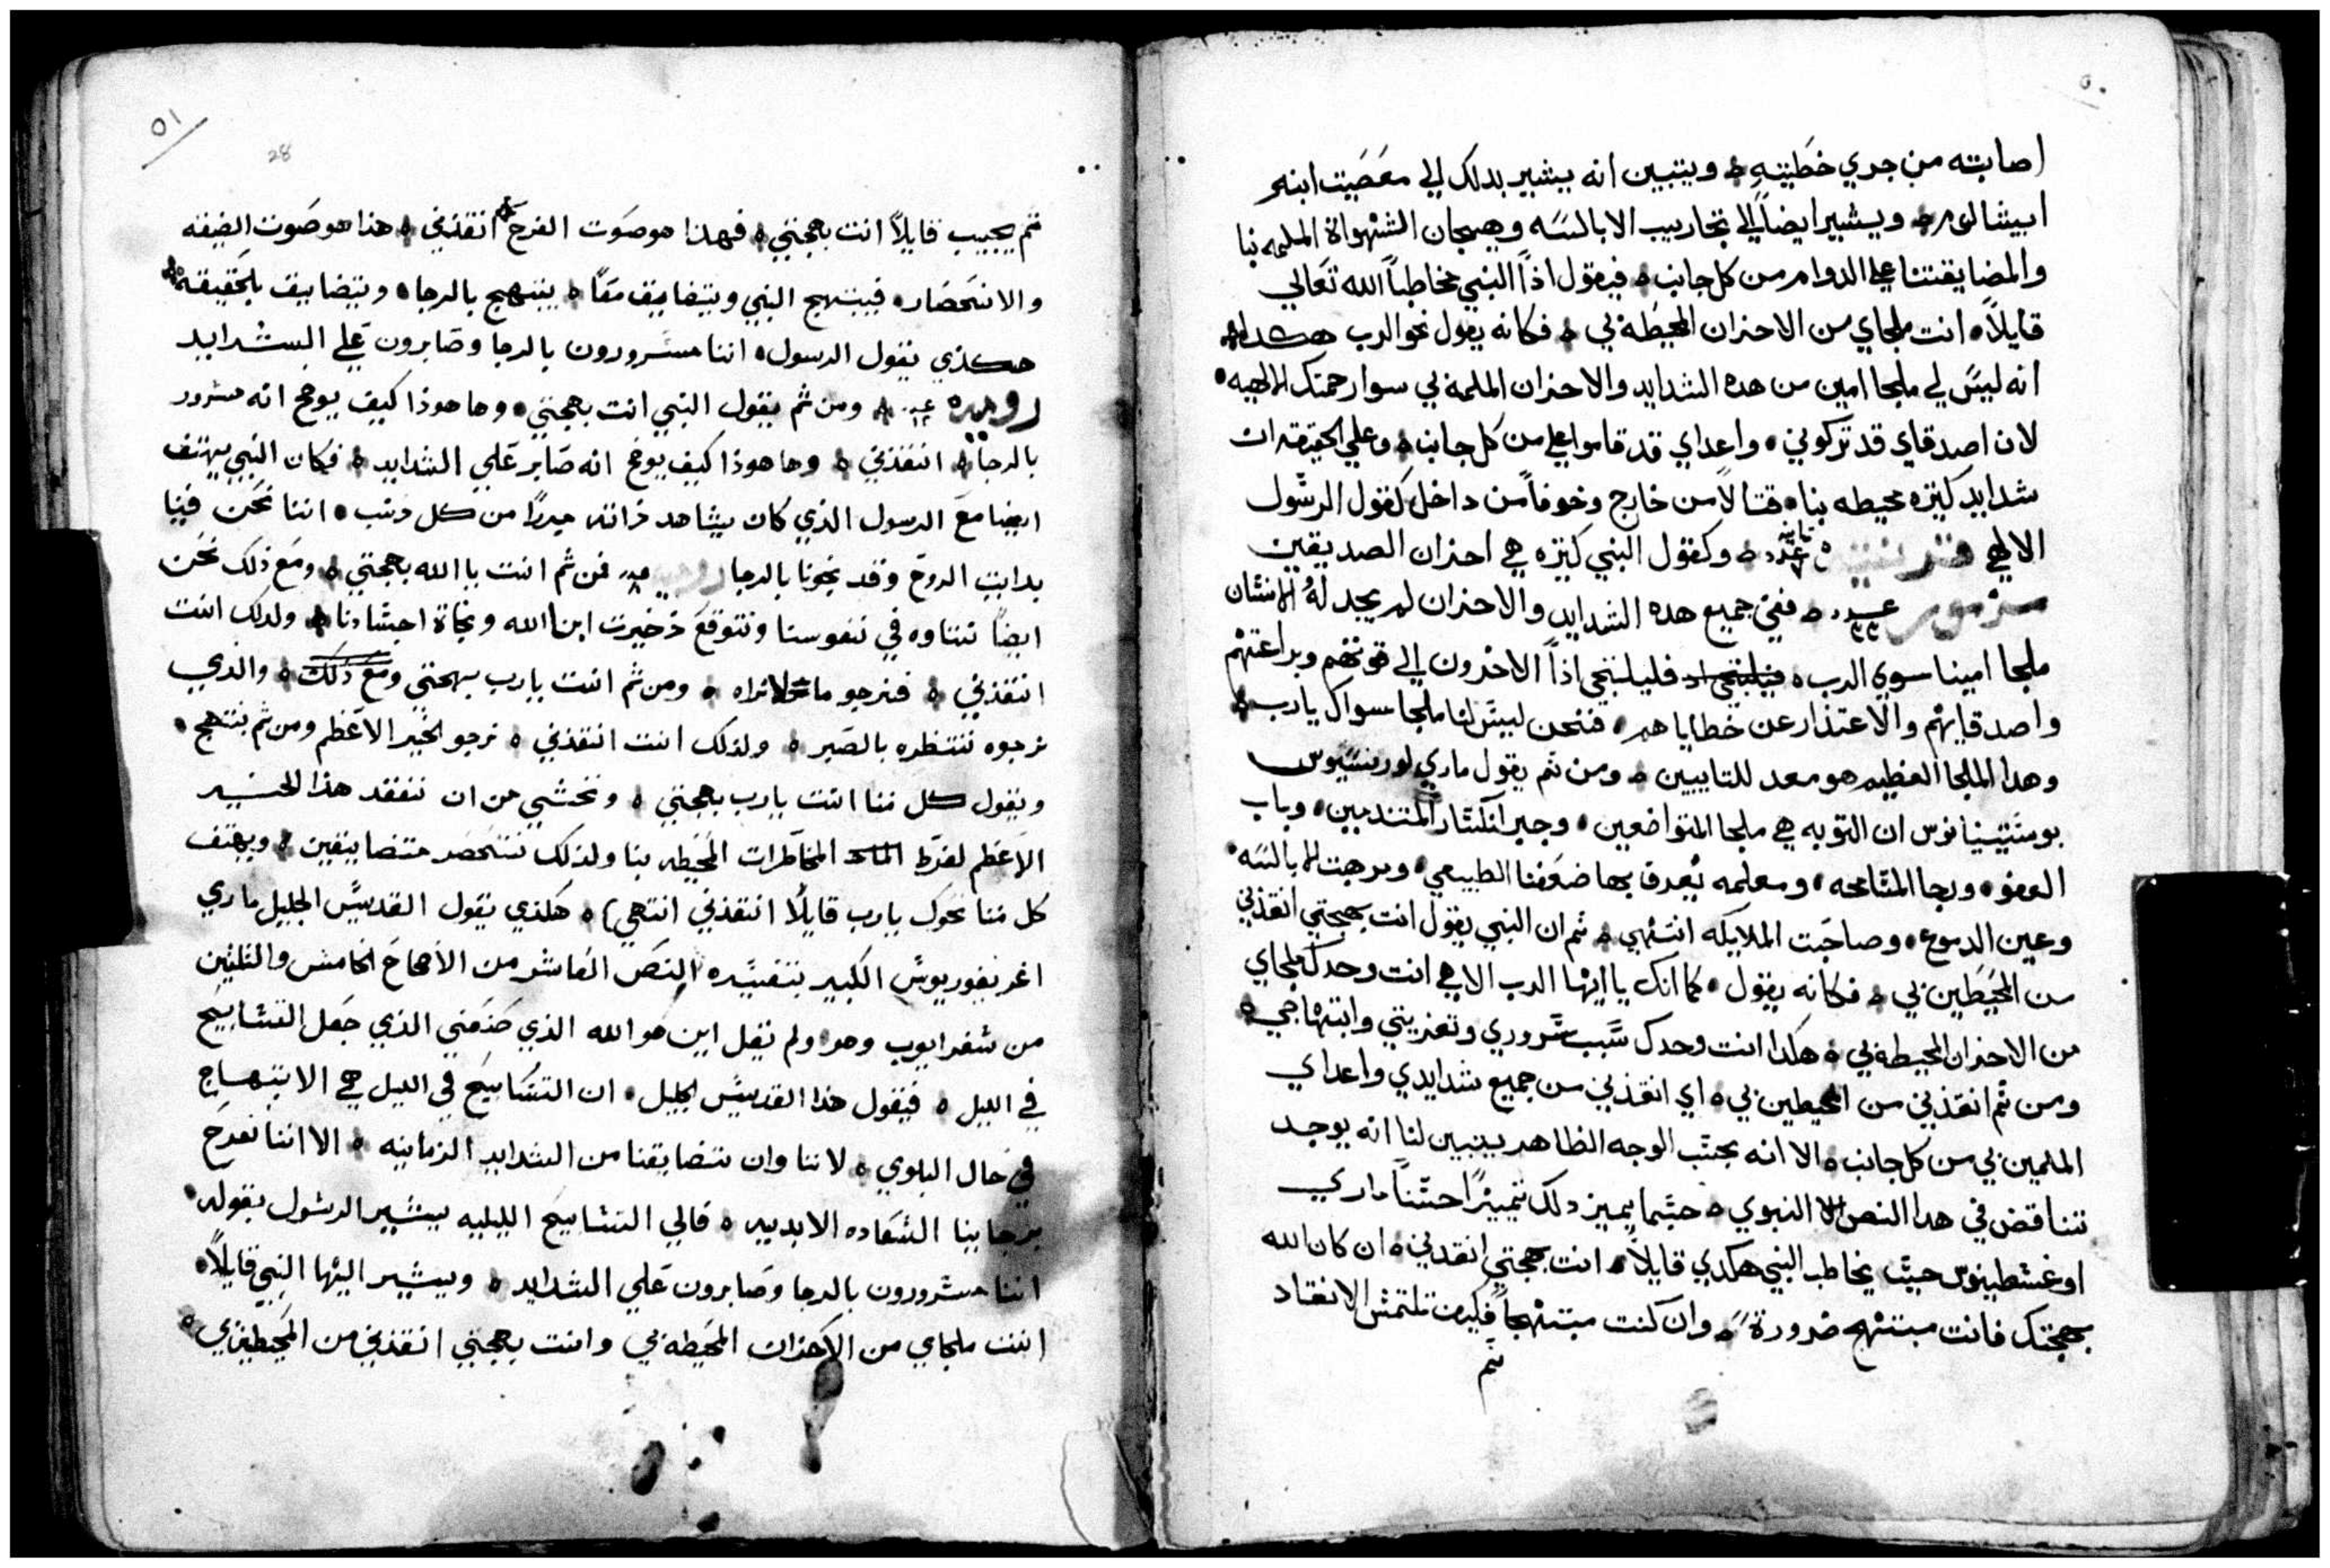 ٥٠
اصابته من جري خطيته ويتبين انه يشير بدلك الي معصيت ابنه
ابيشالوم ويشير ايضاً الي تجاريب الابالسه وهيجان الشهواة الملمه بنا
والمضايقتنا علي الدوام من كل جانب فيقول اذاً النبي مخاطباً الله تعالي
قايلاً انت ملجاي من الاحزان المحيطه بي فكانه يقول نحو الرب هكدا
انه ليس لي ملجا امين من هده الشدايد والاحزان الملمه بي سوا رحمتك الالهيه
لان اصدقاي قد تركوني واعداي قد قاموا علي من كل جانب وعلي الحقيقه ان
شدايد كتيره محيطه بنا قتالاً من خارج وخوفاً من داخل كقول الرسول
الالهي قرنتيه تانيه عدد ٧ وكقول النبي كتيره هي احزان الصديقين
مزمور عدد ٣٣ ففي جميع هده الشدايد والاحزان لم يجد له الانسان
ملجا امينا سوي الرب فليلتجي اذاً الاخرون الي قوتهم وبراعتهم
واصدقايهم والاعتذار عن خطاياهم فنحن ليس لنا ملجا سواك يارب
وهدا الملجا العظيم هو معد للتايبين ومن ثم يقول ماري لورنسيوس
بوستيتيانوس ان التوبه هي ملجا المتواضعين وجبر انكسار المتندمين وباب
العفو ورجا المسامحه ومعلمه يعرف بها ضعفنا الطبيعي ومرجت للابالسه
وعين الدموع وصاحبت الملايكه انتهي ثم ان النبي يقول انت بهجتي انقذني
من المحيطين بي فكانه يقول كما انك يا ايها الرب الاهي انت وحدك ملجاي
من الاحزان المحيطه بي هكدا انت وحدك سبب سروري وتعزيتي وابتهاجي
ومن ثم انقذني من المحيطين بي اي انقذني من جميع شدايدي واعداي
الملمين بي من كل جانب الا انه بحسب الوجه الظاهر يتبين لنا انه يوجد
تناقض في هدا النص النبوي حسبما يميز دلك تمييزاً حسناً ماري
اوغسطينوس حيت يخاطب النبي هكدي قايلاً انت بهجتي انقدني ان كان الله
بهجتك فانت مبتهج ضرورة وان كنت مبتهجاً فكيف تلتمس الانقاد
ثم
٥١
28
ثم يجيب قايلاً انت بهجتي فهذا هو صوت الفرح انقذني هذا هو صوت الضيقه
والانحصار فيبتهج النبي ويتضايق معاً يبتهج بالرجا ويتضايق بالحقيقه
هكذي يقول الرسول اننا مسرورون بالرجا وصابرون علي الشدايد
روميه عدد ١٢ ومن ثم يقول النبي انت بهجتي وها هوذا كيف يوضح انه مسرور
بالرجا انقذني وها هوذا كيف يوضح انه صابر علي الشدايد فكان النبي يهتف
ايضا مع الرسول الذي كان يشاهد ذاته مبرراً من كل ذنب اننا نحن فينا
بدايت الروح وقد نجونا بالرجا روميه عدد ٨ فمن ثم انت يا الله بهجتي ومع ذلك نحن
ايضاً نتناوه في نفوسنا ونتوقع ذخيرت ابنا الله ونجاة اجسادنا ولدلك انت
انقذني فنرجو ما لا نراه ومن ثم انت يارب بهجتي ومع ذلك والذي
نرجوه ننتظره بالصبر ولذلك انت انقذني نرجو الخير الاعظم ومن ثم نبتهج
ويقول كل منا انت يارب بهجتي ونخشي من ان نفقد هذا الخير
الاعظم لفرط المخاطرات المحيطه بنا ولذلك ننحصر متضايقين ويهتف
كل منا نحوك يارب قايلاً انقذني انتهي هكذي يقول القديس الجليل ماري
اغريغوريوس الكبير بتفسيره النص العاشر من الاصحاح الخامس والثلثين
من سفر ايوب وهو ولم يقل اين هو الله الذي صنعني الذي جعل التسابيح
في الليل فيقول هذا القديس الجليل ان التسابيح في الليل هي الابتهاج
في حال البلوي لاننا وان تضايقنا من الشدايد الزمانيه الا اننا نفرح
برجاينا السعاده الابديه فالي التسابيح الليليه يشير الرسول بقوله
اننا مسرورون بالرجا وصابرون علي الشدايد ويشير اليها النبي قايلاً
انت ملجاي من الاحزان المحيطه بي وانت بهجتي انقذني من المحيطين بي